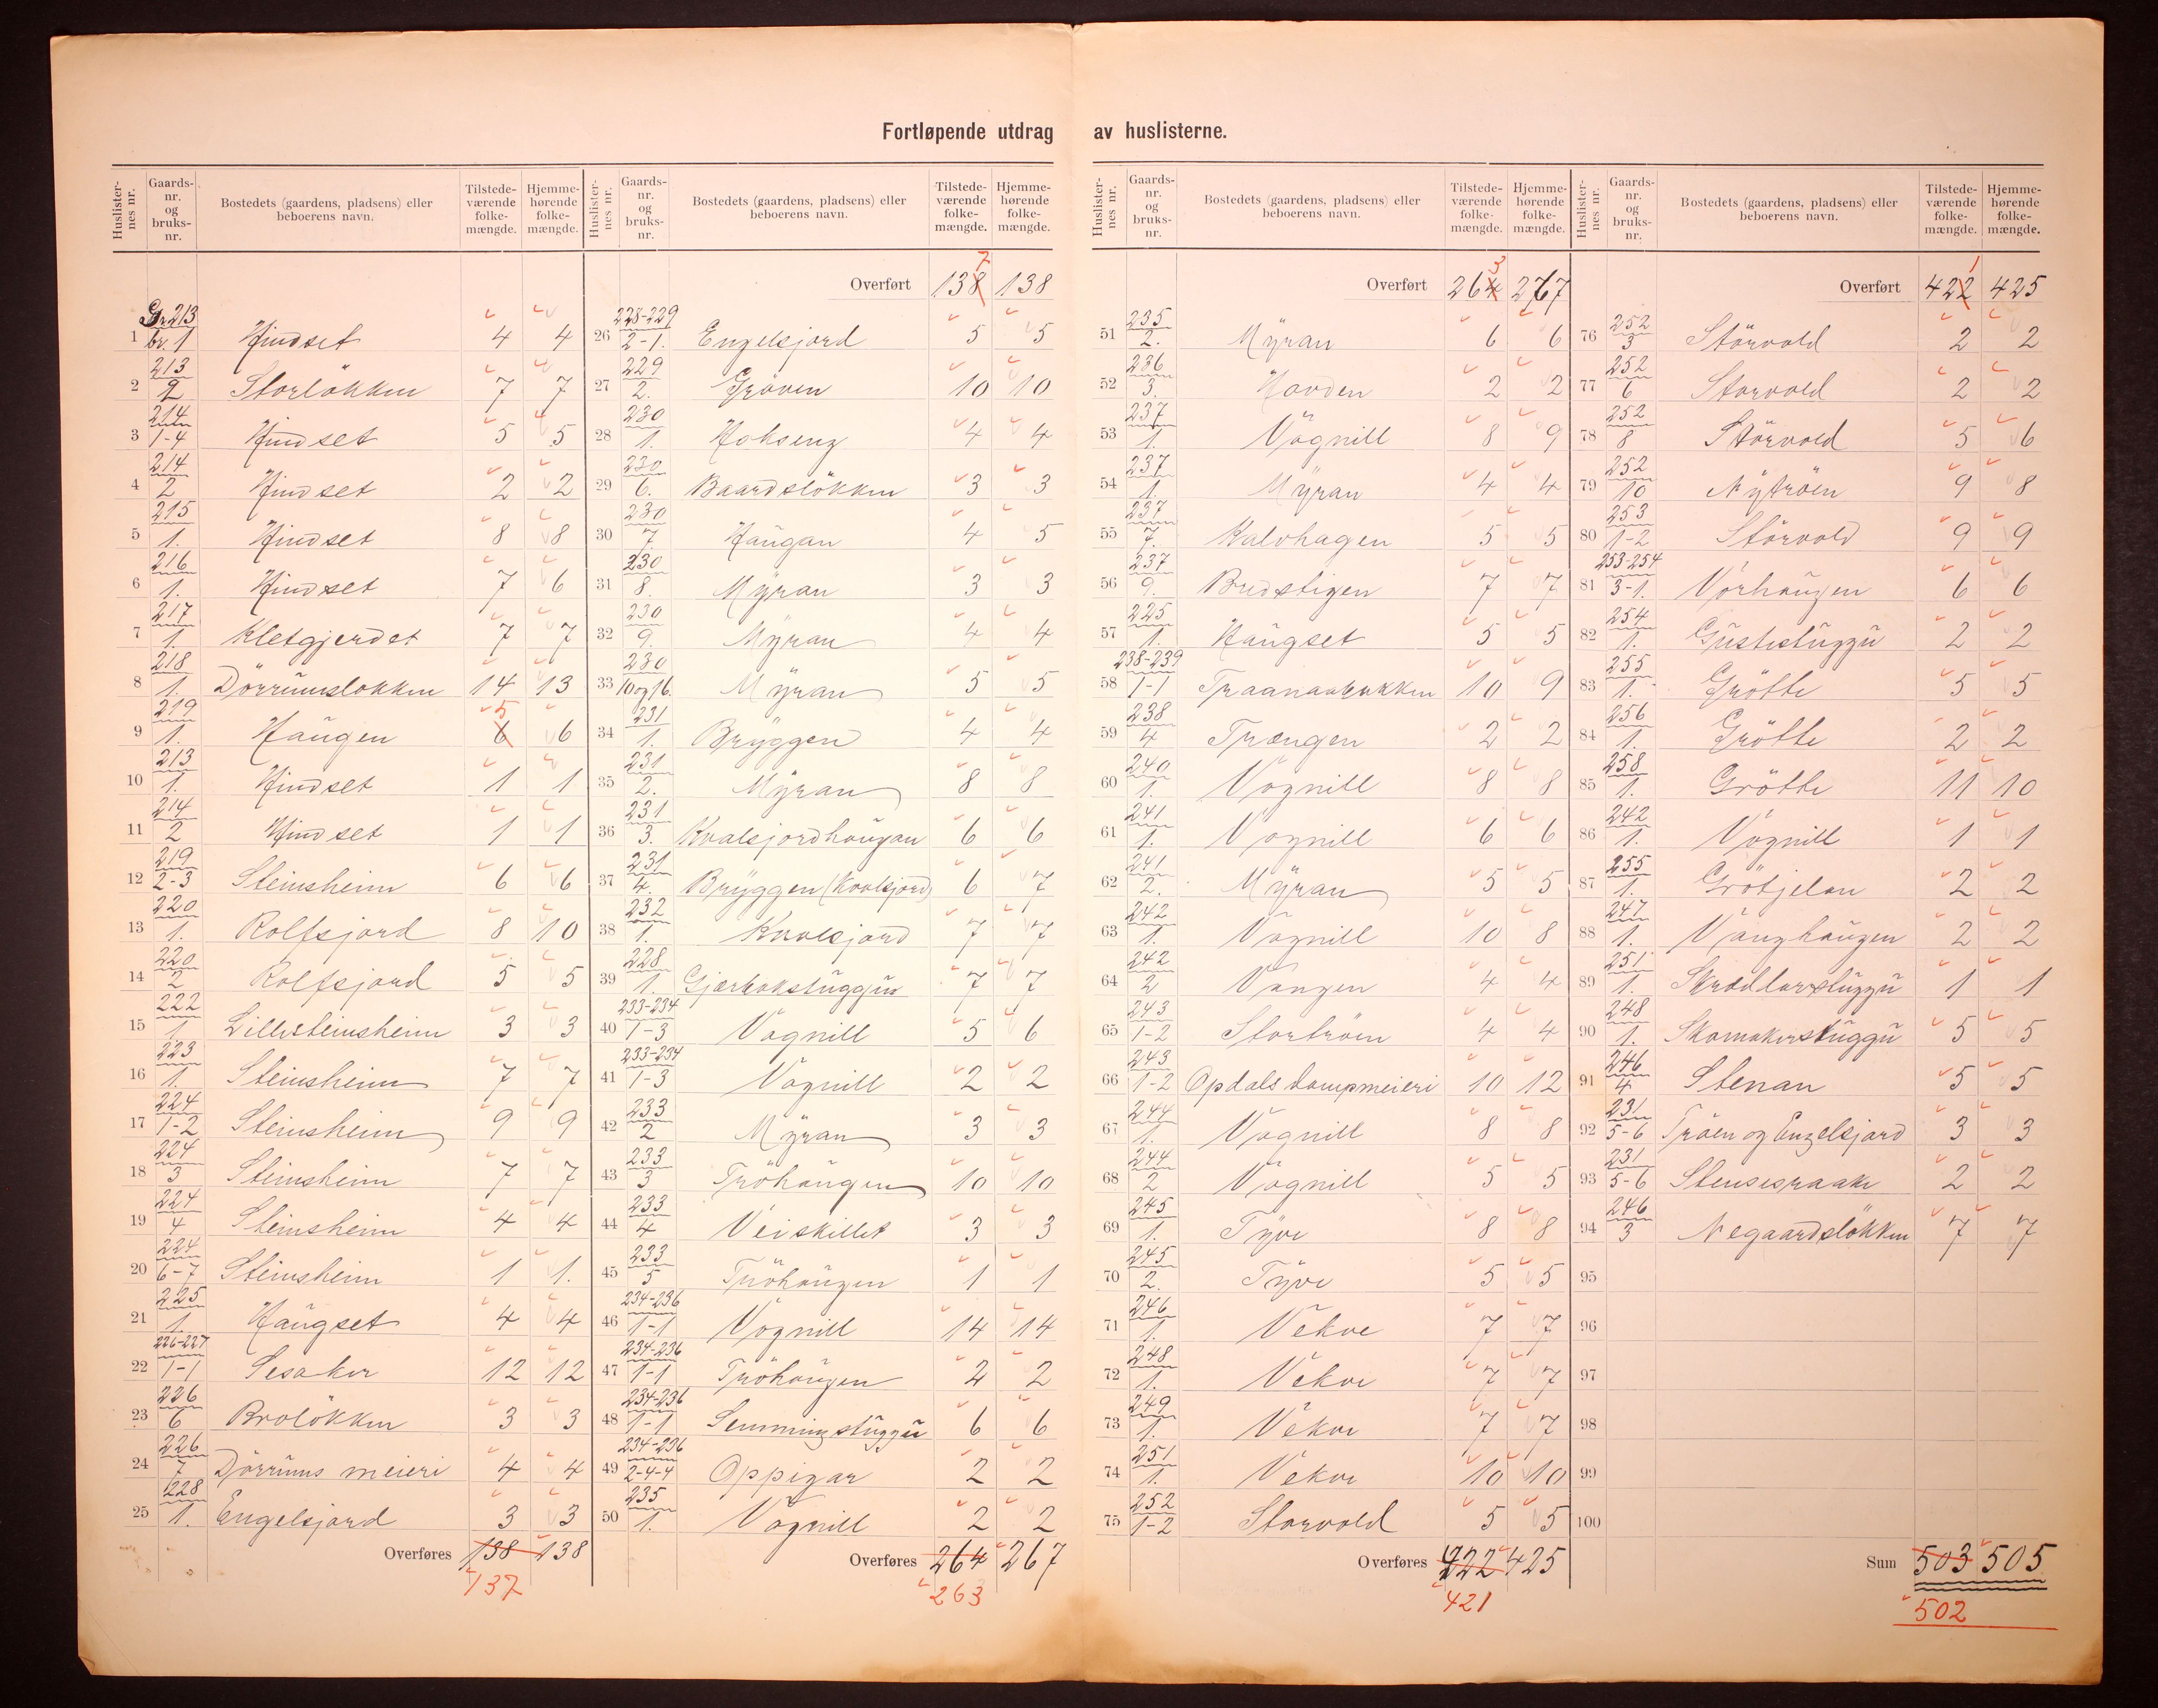 Fortløpende utdrag av huslisterne.
Huslisternes nr. Gaards-nr. og bruks-nr. Bostedets (gaardens, pladsens) eller beboerens navn. Tilstedeværende folkemængde. Hjemmehørende folkemængde.
1 Gr. 213 br. 1 Hindset 4 4
2 213 2 Storløkken 7 7
3 214 1-4 Hindset 5 5
4 214 2 Hindset 2 2
5 215 1. Hindset 8 8
6 216 1. Hindset 7 6
7 217 1. Kletgjerdet 7 7
8 218 1. Dørrumsløkken 14 13
9 219 1. Haugen 6 5 6
10 213 1. Hindset 1 1
11 214 2 Hindset 1 1
12 219 2-3 Steinsheim 6 6
13 220 1. Rolfsjord 8 10
14 220 2 Rolfsjord 5 5
15 222 1. Lillesteinsheim 3 3
16 223 1. Steinsheim 7 7
17 224 1-2 Steinsheim 9 9
18 224 3 Steinsheim 7 7
19 224 4 Steinsheim 4 4
20 224 6-7 Steinsheim 1 1.
21 225 1. Haugset 4 4
22 226-227 1-1 Sesaker 12 12
23 226 6 Broløkken 3 3
24 226 7 Dørrums meieri 4 4
25 228 1. Engelsjord 3 3
Overføres 138 138
137
Huslisternes nr. Gaards-nr. og bruks-nr. Bostedets (gaardens, pladsens) eller beboerens navn. Tilstedeværende folkemængde. Hjemmehørende folkemængde.
Overført 138 7 138
26 228-229 2-1. Engelsjord 5 5
27 229 2. Grøven 10 10
28 230 1. Hokseng 4 4
29 230 6. Baardsløkken 3 3
30 230 7. Haugan 4 5
31 230 8. Myran 3 3
32 230 9. Myran 4 4
33 230 10 og 16. Myran 5 5
34 231 1. Bryggen 4 4
35 231 2. Myran 8 8
36 231 3. Kvalsjordhaugan 6 6
37 231 4. Bryggen (Kvalsjord) 6 7
38 232 1. Kvalsjord 7 7
39 228 1. 7 7
40 233-234 1-3 Vognill 5 6
41 233-234 1-3 Vognill 2 2
42 233 2 Myran 3 3
43 233 3 Trøhaugen 10 10
44 233 4 Veiskillet 3 3
45 233 5 Trøhaugen 1 1
46 234-236 1-1 Vognill 14 14
47 234-236 1-1 Trøhaugen 2 2
48 234-236 1-1 Semmingstuggu 6 6
49 234-236 2-4-4 Oppigar 2 2
50 235 1. Vognill 2 2
Overføres 264 267
263
Huslisternes nr. Gaards-nr. og bruks-nr. Bostedets (gaardens, pladsens) eller beboerens navn. Tilstedeværende folkemængde. Hjemmehørende folkemængde.
Overført 264 3 267
51 235 2. Myran 6 6
52 236 3. Hovden 2 2
53 237 1. Vognill 8 9
54 237 1. Myran 4 4
55 237 7. Kalvhagen 5 5
56 237 9. Brudstigen 7 7
57 225 1. Haugset 5 5
58 238-239 1-1 10 9
59 238 4 Trængen 2 2
60 240 1. Vognill 8 8
61 241 1. Vognill 6 6
62 241 2. Myran 5 5
63 242 1. Vognill 10 8
64 242 2 Vangen 4 4
65 243 1-2 Stortrøen 4 4
66 243 1-2 Opdals dampmeieri 10 12
67 244 1. Vognill 8 8
68 244 2 Vognill 5 5
69 245 1. Tyve 8 8
70 245 2. Tyve 5 5
71 246 1. Vekve 7 7
72 248 1. Vekve 7 7
73 249 1. Vekve 7 7
74 251 1. Vekve 10 10
75 252 1-2 Storvold 5 5
Overføres 422 425
421
Huslisternes nr. Gaards-nr. og bruks-nr. Bostedets (gaardens, pladsens) eller beboerens navn. Tilstedeværende folkemængde. Hjemmehørende folkemængde.
Overført 422 1 425
76 252 3 Storvold 2 2
77 252 6 Storvold 2 2
78 252 8 Storvold 5 6
79 252 10 Nytrøen 9 8
80 253 1-2 Storvold 9 9
81 253-254 3-1. Vorhaugen 6 6
82 254 1. Gustustuggu 2 2
83 255 1. Grøtte 5 5
84 256 1. Grøtte 2 2
85 258 1. Grøtte 11 10
86 242 1. Vognill 1 1
87 255 1. Grøtjelan 2 2
88 247 1. Vanghaugen 2 2
89 251 1. Skræddarstuggu 1 1
90 248 1. Skomakerstuggu 5 5
91 246 4 Stenan 5 5
92 231 5-6 Trøen og Engelsjord 3 3
93 231 5-6 2 2
94 246 3 Negaardsløkken 7 7
95
96
97
98
99
100
Sum 503 505
502